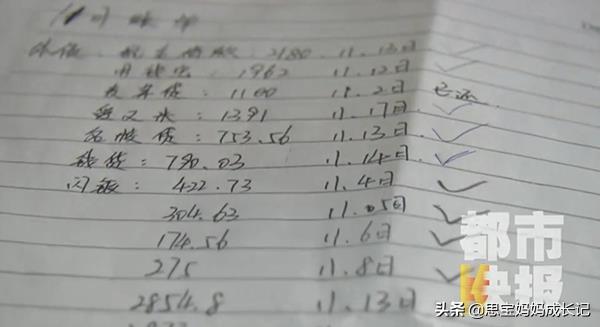 11月账单
2180. 11.13日
用钱宝：1962 11.12日
发薪贷：1100 11.2日 已还
1391 11.17日
名校贷：753.56 11.13日
钱贷：790.03 11.14日
闪银：422.73 11.4日
304.63 11.05日
174.56 11.6日
275 11.8日
2854.8 11.13日
都市
快报
头条 @思宝妈妈成长记